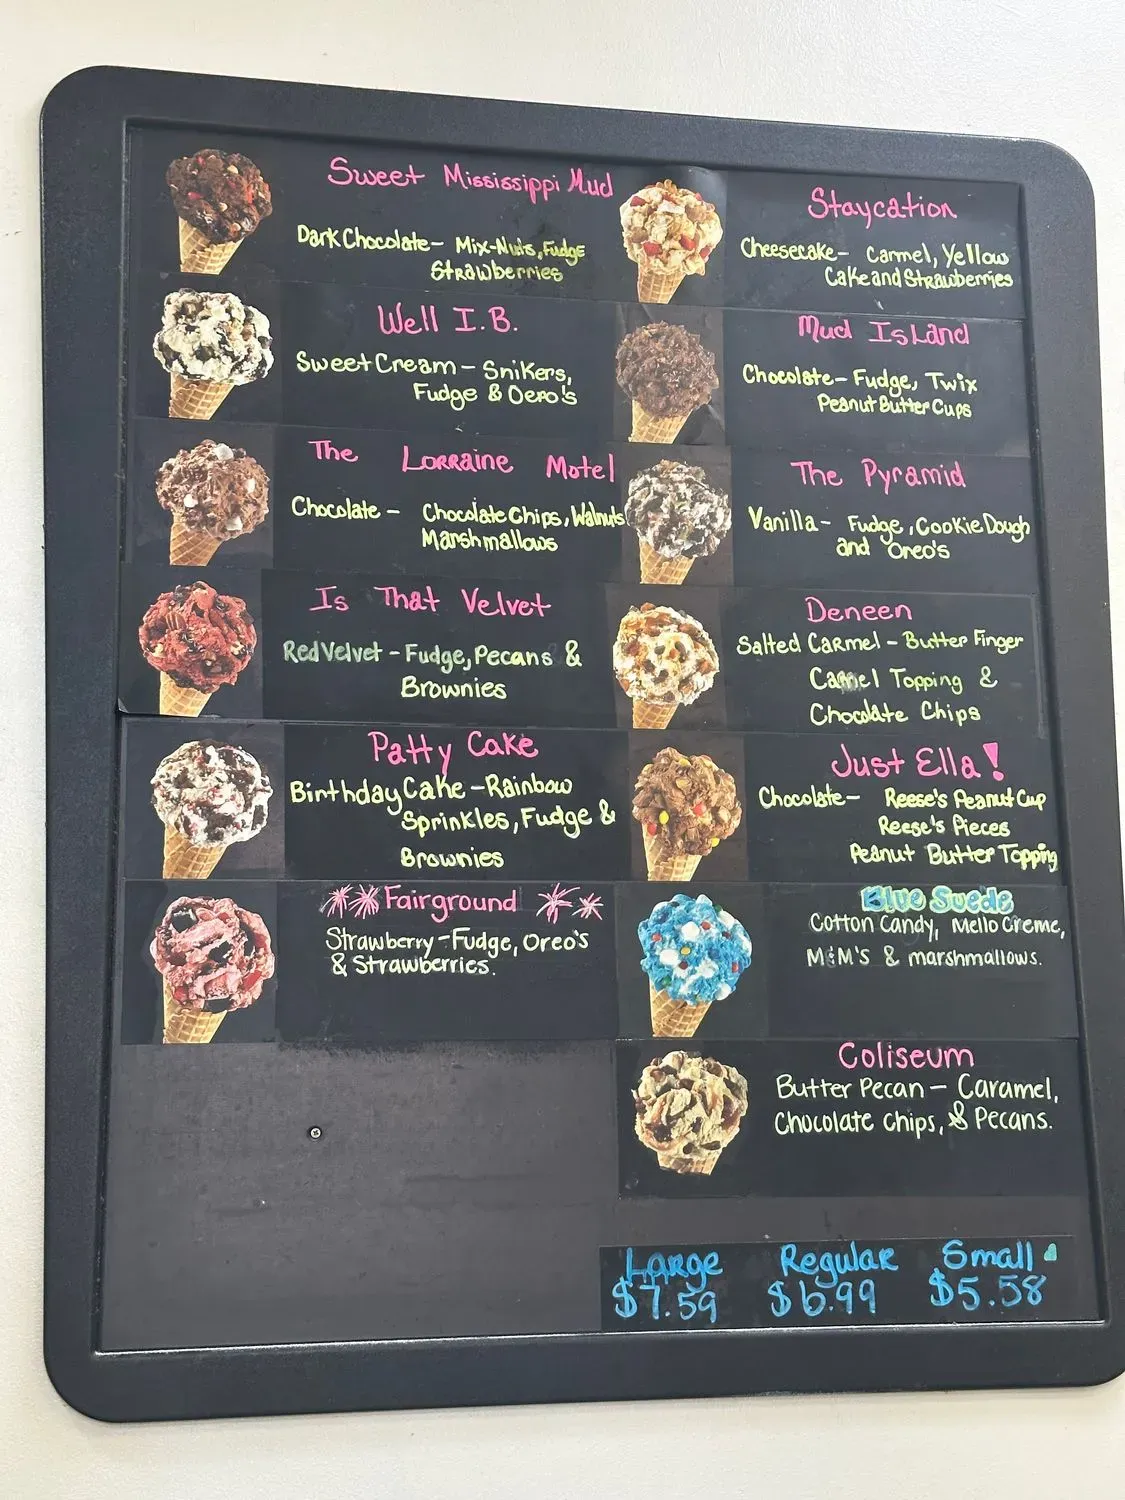 Sweet Mississippi Mud
Dark Chocolate- Mix-Nuts, Fudge
Strawberries
Well I.B.
Sweet Cream - Snikers,
Fudge & Oero's
The Lorraine Motel
Chocolate - Chocolate Chips, Walnuts
Marshmallows
Is That Velvet
Red Velvet - Fudge, Pecans &
Brownies
Patty Cake
Birthday Cake - Rainbow
Sprinkles, Fudge &
Brownies
Fairground
Strawberry - Fudge, Oreo's
& Strawberries.
Staycation
Cheesecake- Carmel, Yellow
Cake and Strawberries
Mud Island
Chocolate- Fudge, Twix
Peanut Butter Cups
The Pyramid
Vanilla- Fudge, Cookie Dough
and Oreo's
Deneen
Salted Carmel - Butter Finger
Carmel Topping &
Chocolate Chips
Just Ella!
Chocolate- Reese's Peanut Cup
Reese's Pieces
Peanut Butter Topping
Blue Suede
Cotton Candy, Mello Creme,
M&M'S & marshmallows.
Coliseum
Butter Pecan - Caramel,
Chocolate chips, & Pecans.
Large Regular Small
$7.59 $6.99 $5.58